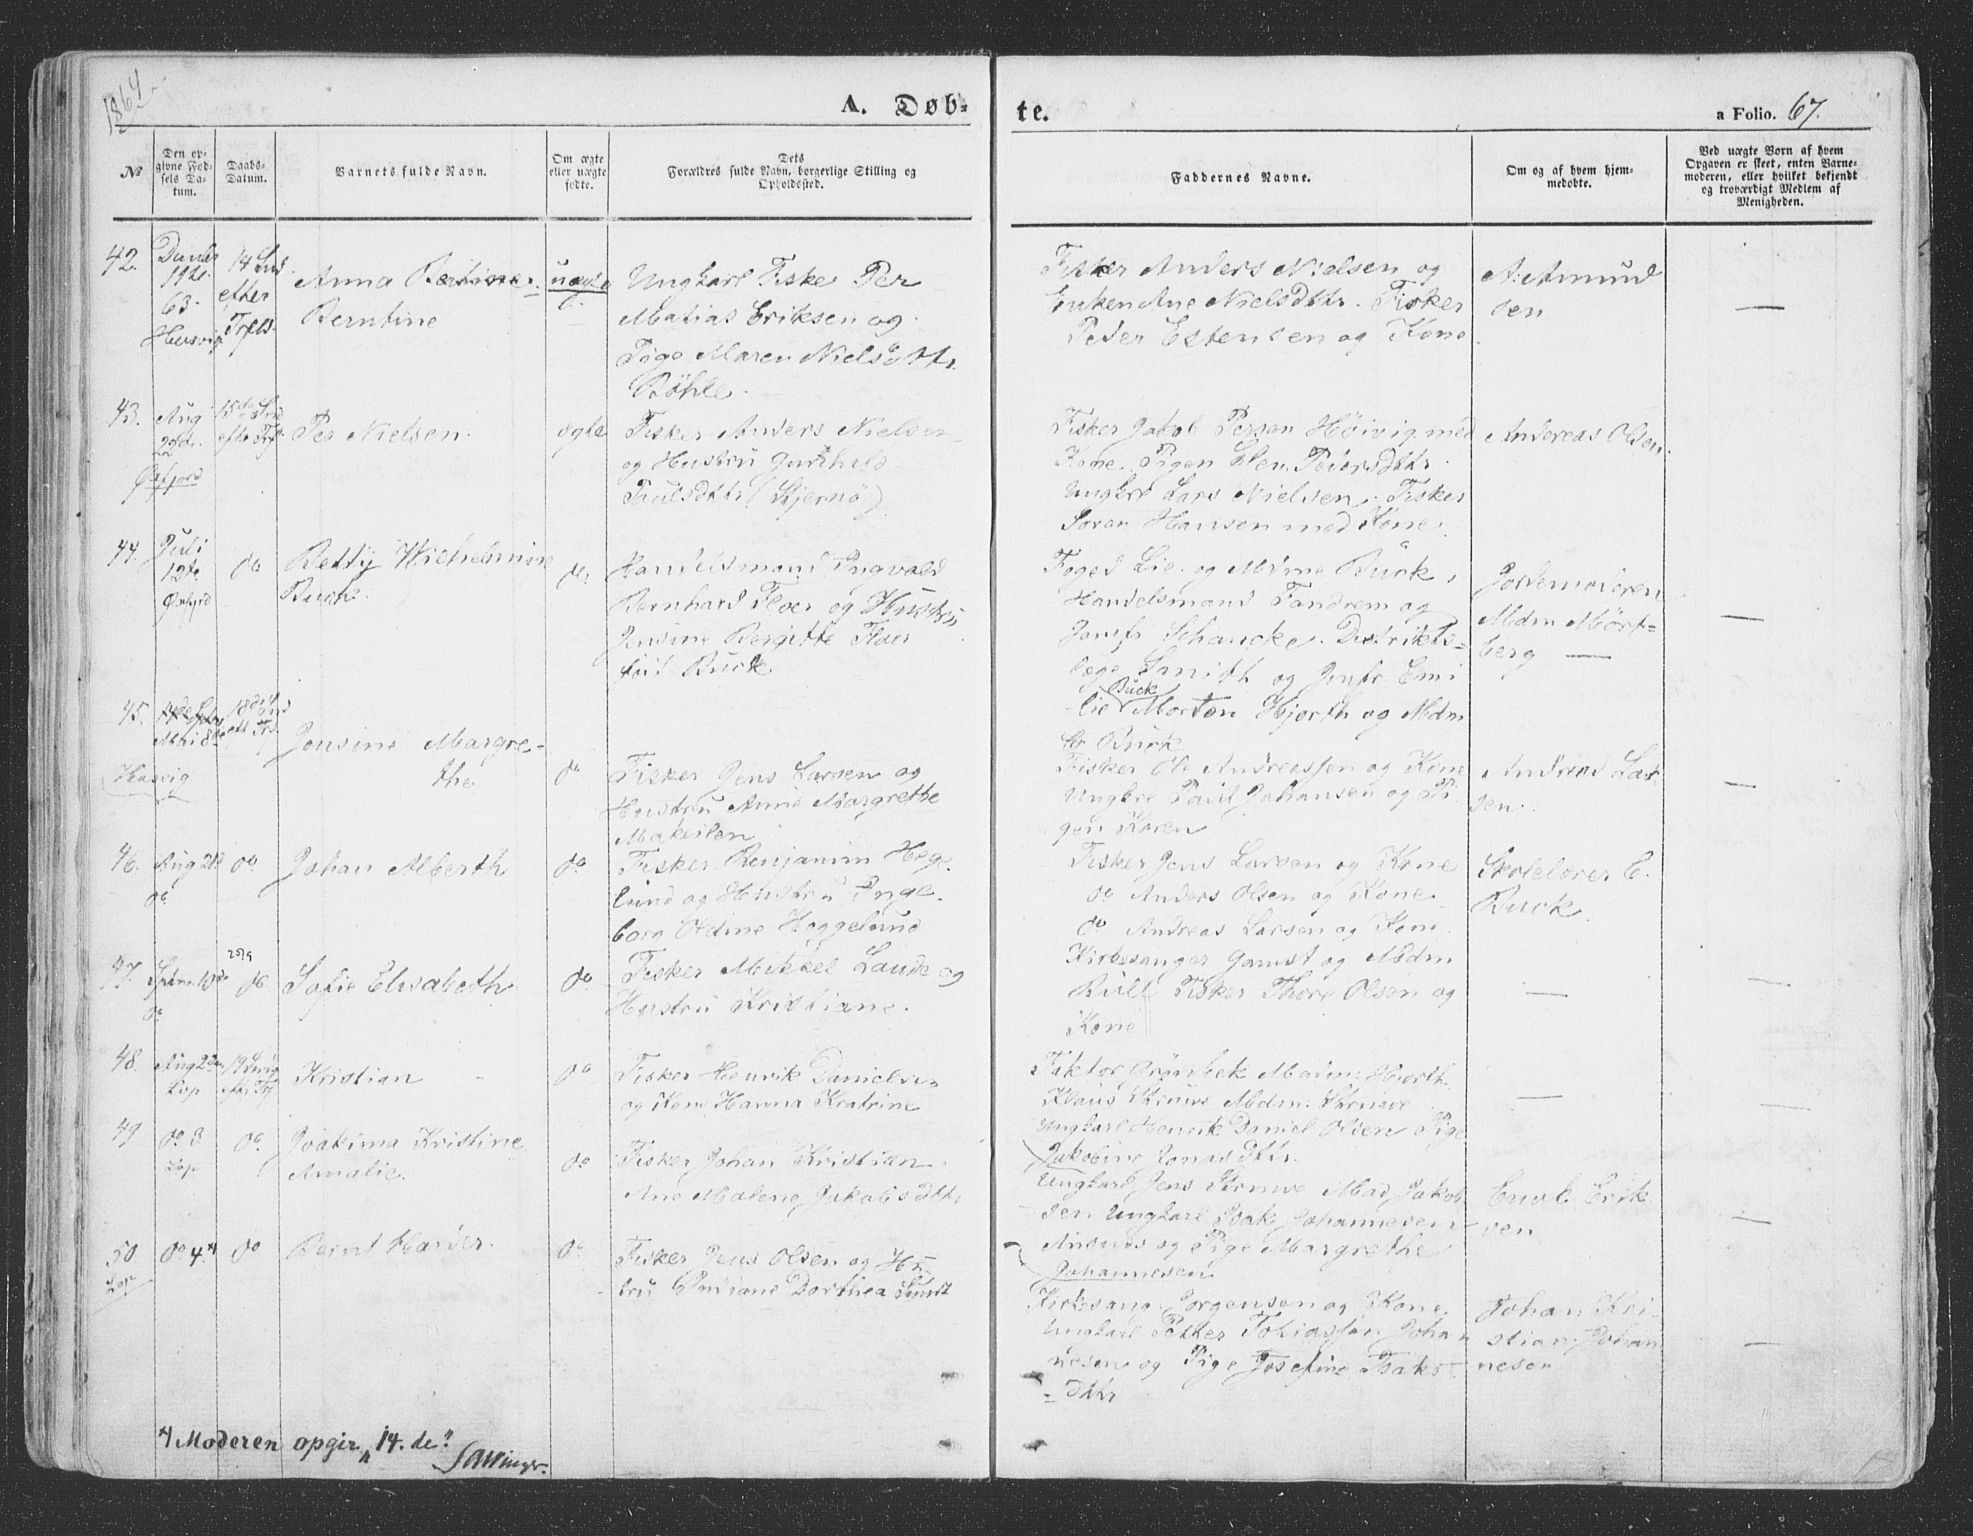 1864
A. Døb-
te.
a Folio. 67.
№
Den op-
givne Fød-
sels Da-
tum.
Daabs-
Datum.
Barnets fulde Navn.
Om ægte
eller uægte
fødte.
Dets
Forældres fulde Navn, borgerlige Stilling og
Opholdssted.
Faddernes Navne.
Om og af hvem hjem-
medøbte.
Ved uægte Børn af hvem
Opgaven er skeet, enten Barne-
moderen, eller hvilket bekjendt
og troværdigt Medlem af
Menigheden.
42.
19de
63.
14 Snd
efter
Trfts
Anna
Berntine
uægte
Ungkarl Fisker Per
Matias Eriksen og
Pige Maren Nielsdttr.
Böhle.
Fisker Anders Nielsen og
Enken Ane Nielsdttr. Fisker
Peder Estensen og Kone
A. Amund
sen
—
43.
Aug
22de
Øxfjord
15de Snd
efter Trf
Per Nielsen.
ægte
Fisker Anders Nielsen
og Hustru Gunhild
Paulsdttr (Stjernø)
Fisker Jakob Persen Höivig med
Kone. Pigen Elen Pedersdttr.
Ungkrl Lars Nielsen. Fisker
Soren Hansen med Kone.
Andreas Olsen.
44.
Juli
12te
Øxfjrd
do
Betty Wilhelmine
Buck.
do.
Handelsmand Ingvald
Bernhard Floer og Hustru
Jensine Bergitte Floer
föd Buck
Foged Lie og Mdme Buck,
Handelsmand Fandrem og
Jomfr Schancke. Distrikts-
læge Smith og Jmfr. Emi
Buck
lie Morten Hjorth og Mdm
E Buck
Jordemoderen
Mdm Mört-
berg —
—
45.
Mai 8de
Hasvig
18de Snd
eft Trf.
Jensine Margre-
the
do
Fisker Jens Larsen og
Hustru Anne Margrethe
Makeilen
Fisker Ole Andreassen og Kone
Ungkre Paul Johansen og Pi
gen Karen
Andreas Lar
sen.
—
46.
Aug 21
do
do
Johan Alberth
do
Fisker Benjamin Heg-
lund og Hustru Inge-
borg Oldine Heggelund
Fisker Jens Larsen og Kone
do Anders Olsen og Kone
do Andreas Larsen og Kone
Skolelærer E.
Buck.
47.
do
25/9
do
Sofie Elisabeth
do
Fisker Mikkel Laude og
Hustru Kristiane.
Kirkesanger Garnst og Mdm
Bull Fisker Thore Olsen og
Kone
—
—
48.
Lop
Kristian
do
Fisker Henrik Danielsen
og Kone Hanna Katrine
Faktor Grönbek Madm: Hjorth
Klaus Struve Mdm: Struve
Ungkarl Henrik Daniel Olsen Pige
Jakobine Jonasdttr.
—
—
49
do 3
Lop
do.
Joakima Kristine
Amalie.
do
Fisker Johan Kristian
Ane Malene Jakobsdttr.
Ungkarl Jens Struve Mad. Jakob
sen Ungkarl Isak Johannesen
og Pige Margrethe
Johannesen
Erik
sen
—
50
Lop
do 4. 4
do
Bernt Harder.
do
Fisker Jens Olsen og Hu
tru Dorthea Sundt
Kirkesang. Jorgensen og Kone
Ungkarl Petter Tobiassen Johan
nesen og Pige Josefine Isaks
- dttr
Johan Kri-
stian Johan
nesen
—
4 Moderen opgir „14. de"